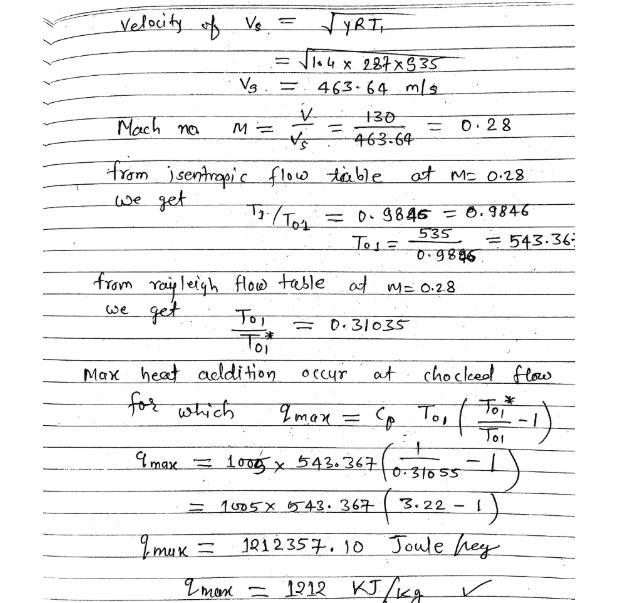 Velocity of Vs = √γRT₁
= √1.4 x 287 x 535
Vs = 463.64 m/s
Mach no M = V/Vs = 130/463.64 = 0.28
from isentropic flow table at M = 0.28
we get
T1/T01 = 0.9846 = 0.9846
T01 = 535/0.9846 = 543.36
from rayleigh flow table at M = 0.28
we get
T01/T01* = 0.31035
Max heat addition occur at chocked flow
for which qmax = Cp T01 (T01*/T01 - 1)
qmax = 1005 x 543.367 (1/0.31055 - 1)
= 1005 x 543.367 (3.22 - 1)
qmax = 1212357.10 Joule/keg
qmax = 1212 KJ/kg ✓